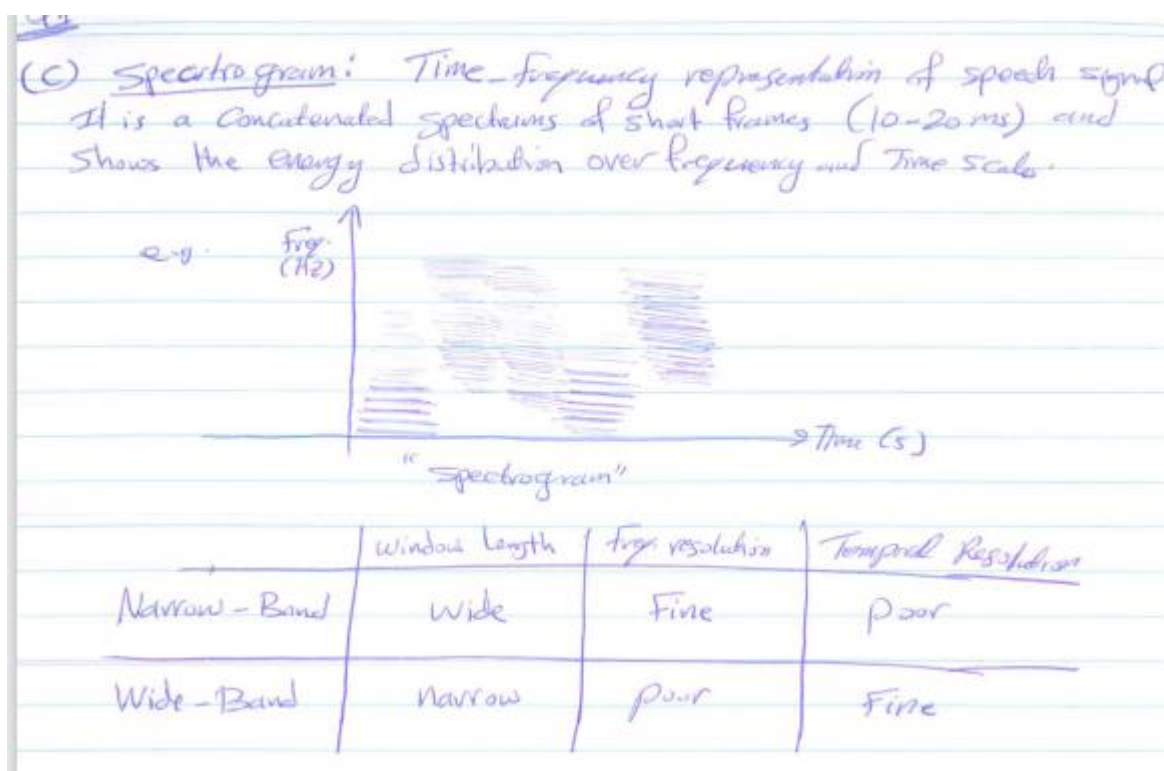 (c) Spectrogram: Time-frequency representation of speech signal
It is a Concatenated spectrums of short frames (10-20 ms) and
Shows the energy distribution over frequency and Time scale.
e.g.
Freq.
(Hz)
Time (s)
"Spectrogram"
Window Length Freq. resolution Temporal Resolution
Narrow-Band Wide Fine poor
Wide-Band narrow poor Fine